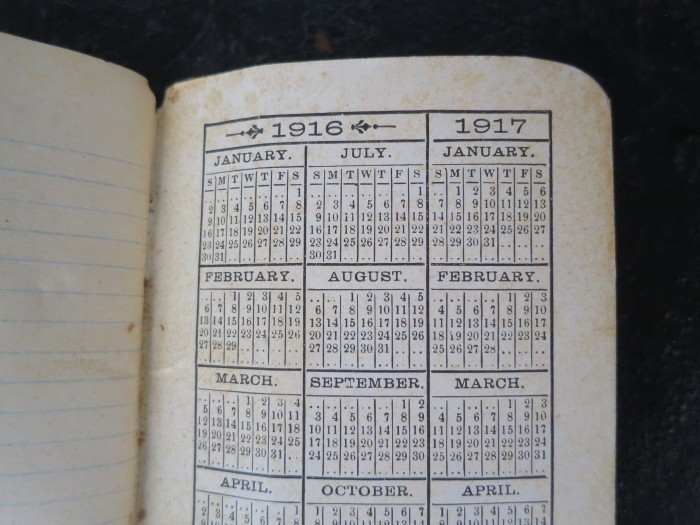 1916
JANUARY.
S M T W T F S
1
2 3 4 5 6 7 8
9 10 11 12 13 14 15
16 17 18 19 20 21 22
23 24 25 26 27 28 29
30 31
FEBRUARY.
1 2 3 4 5
6 7 8 9 10 11 12
13 14 15 16 17 18 19
20 21 22 23 24 25 26
27 28 29
MARCH.
1 2 3 4
5 6 7 8 9 10 11
12 13 14 15 16 17 18
19 20 21 22 23 24 25
26 27 28 29 30 31
APRIL.
1
2 3 4 5 6 7 8
JULY.
S M T W T F S
1
2 3 4 5 6 7 8
9 10 11 12 13 14 15
16 17 18 19 20 21 22
23 24 25 26 27 28 29
30 31
AUGUST.
1 2 3 4 5
6 7 8 9 10 11 12
13 14 15 16 17 18 19
20 21 22 23 24 25 26
27 28 29 30 31
SEPTEMBER.
1 2
3 4 5 6 7 8 9
10 11 12 13 14 15 16
17 18 19 20 21 22 23
24 25 26 27 28 29 30
OCTOBER.
1 2 3 4 5 6 7
8 9 10 11 12 13 14
1917
JANUARY.
S M T W T F S
1 2 3 4 5 6
7 8 9 10 11 12 13
14 15 16 17 18 19 20
21 22 23 24 25 26 27
28 29 30 31
FEBRUARY.
1 2 3
4 5 6 7 8 9 10
11 12 13 14 15 16 17
18 19 20 21 22 23 24
25 26 27 28
MARCH.
1 2 3
4 5 6 7 8 9 10
11 12 13 14 15 16 17
18 19 20 21 22 23 24
25 26 27 28 29 30 31
APRIL.
1 2 3 4 5 6 7
8 9 10 11 12 13 14